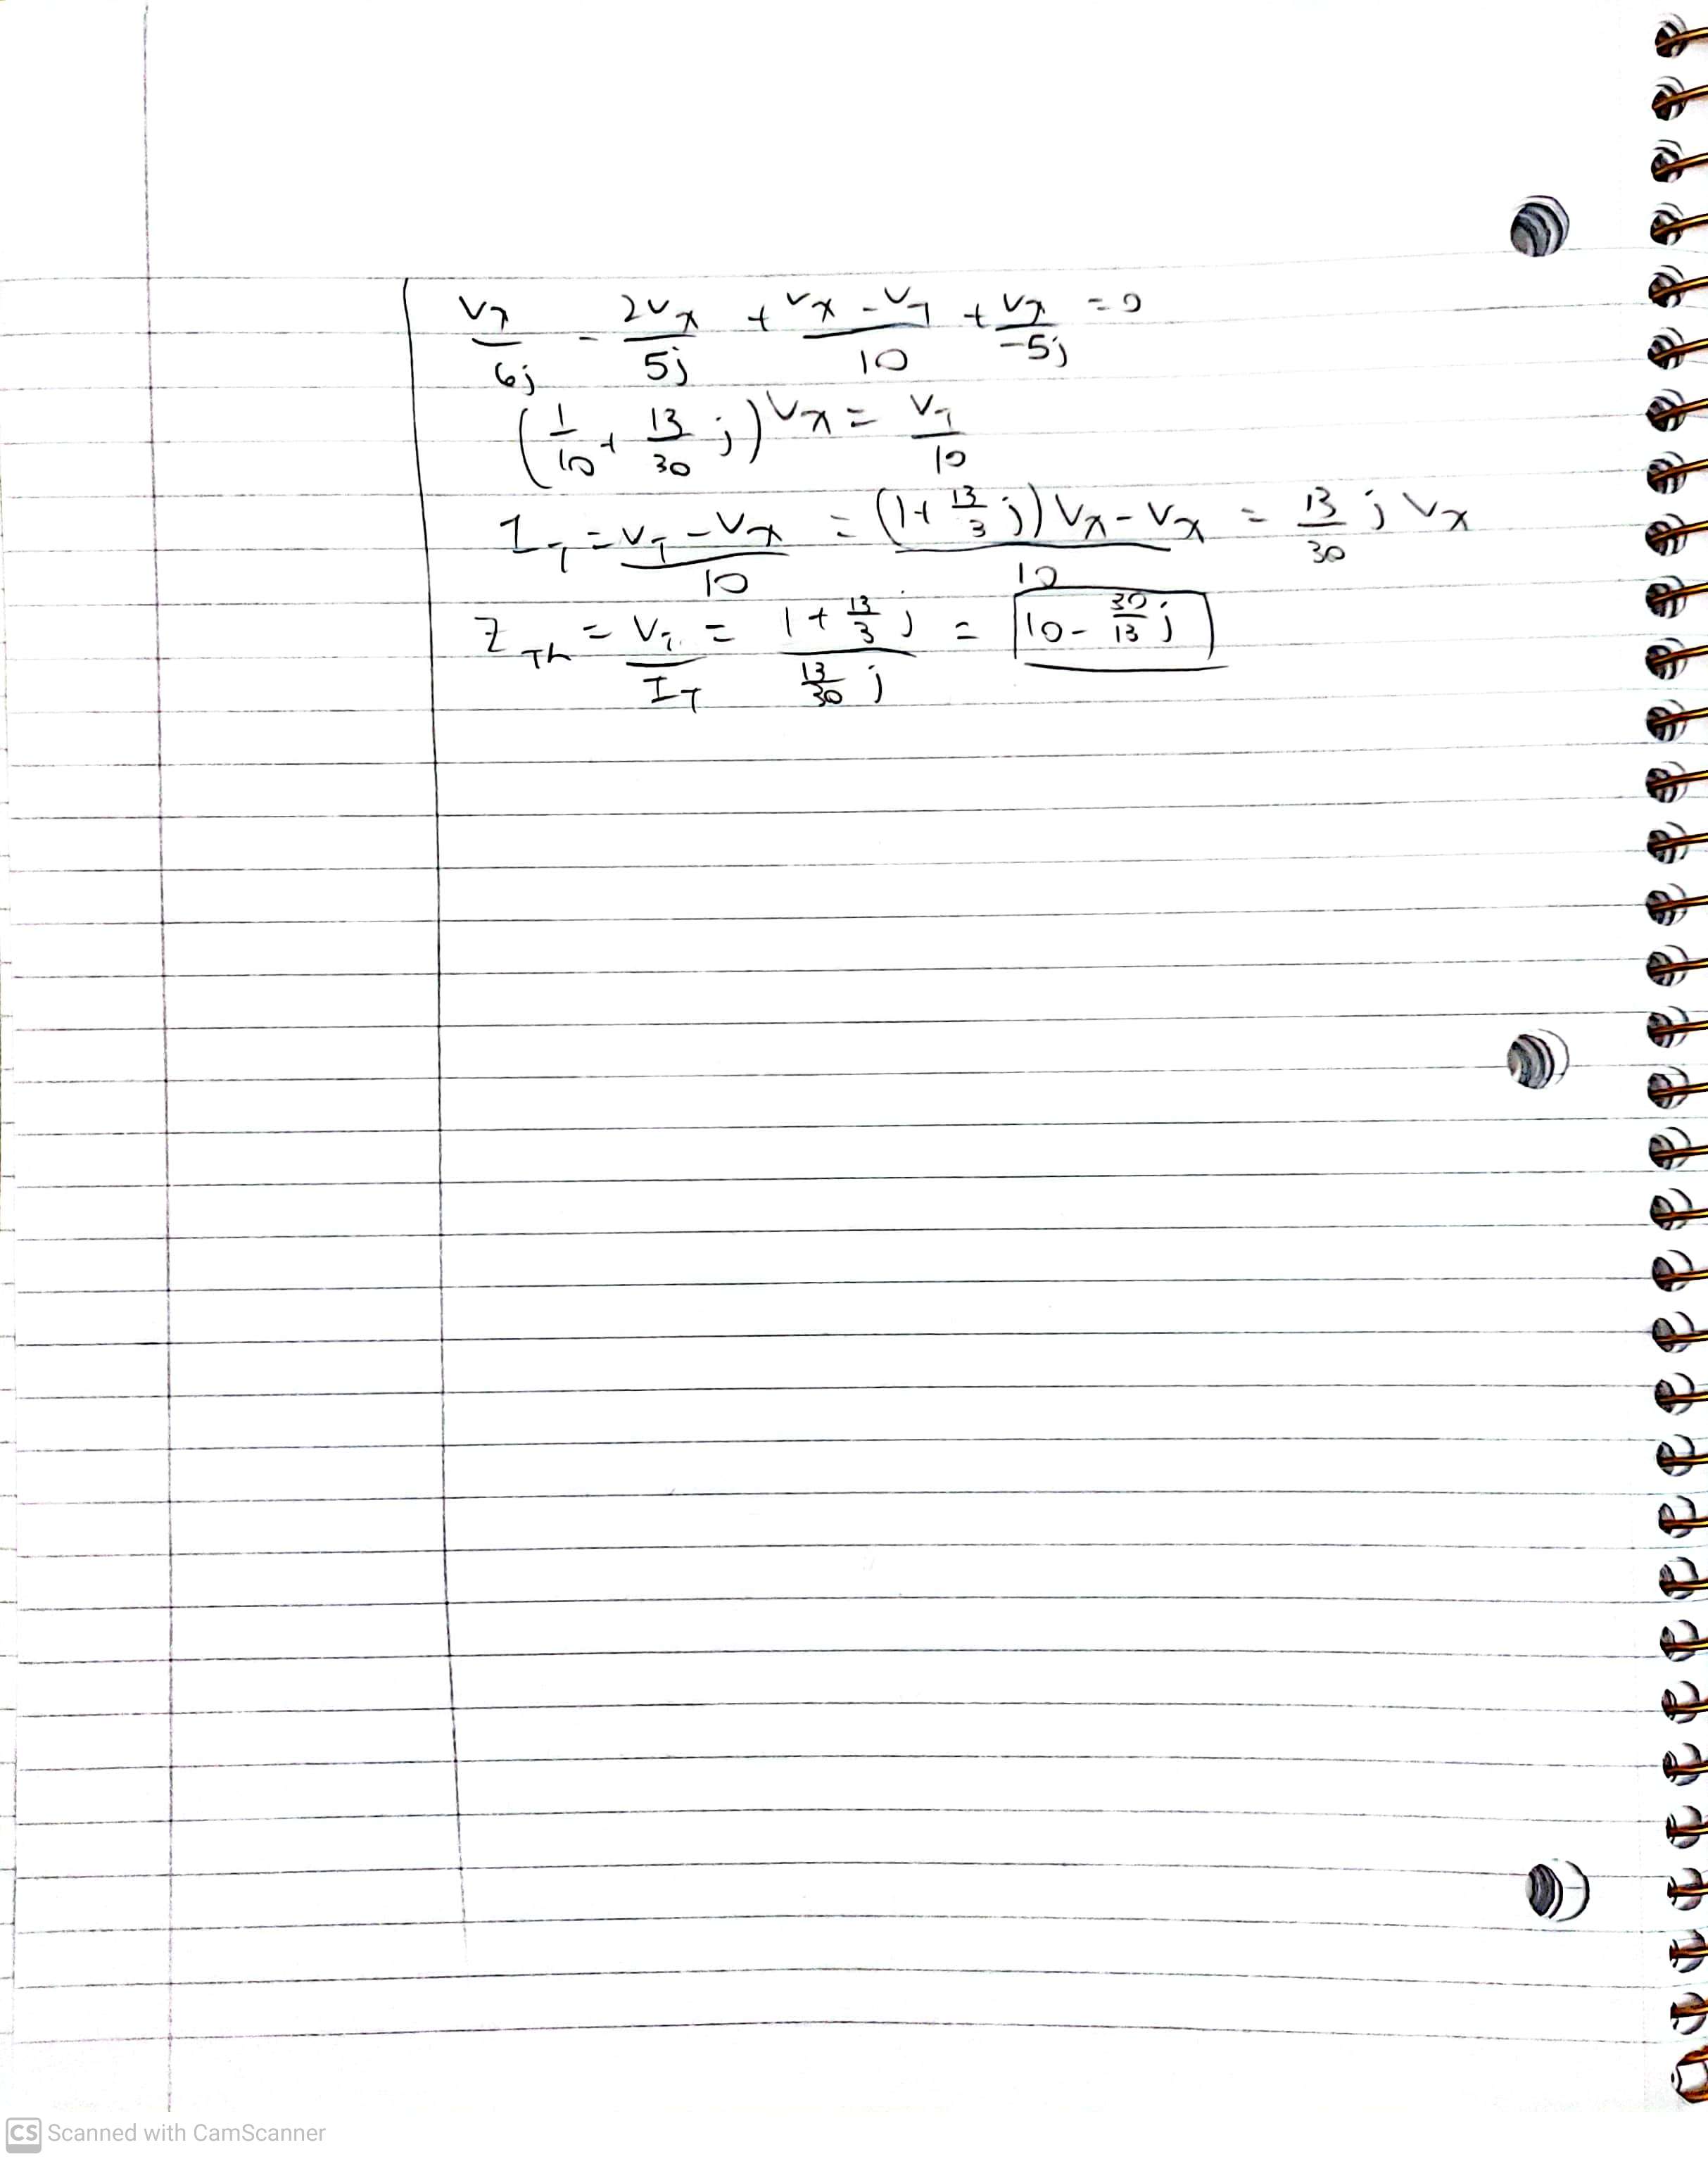 Vx/6j - 2Vx/5j + Vx - VT/10 + Vx/-5j = 0
(1/10 + 13/30 j) Vx = VT/10
IT = VT - Vx/10 = (1 + 13/3 j) Vx - Vx/10 = 13/30 j Vx
ZTh = VT/IT = 1 + 13/3 j/13/30 j = 10 - 30/13 j
CS Scanned with CamScanner